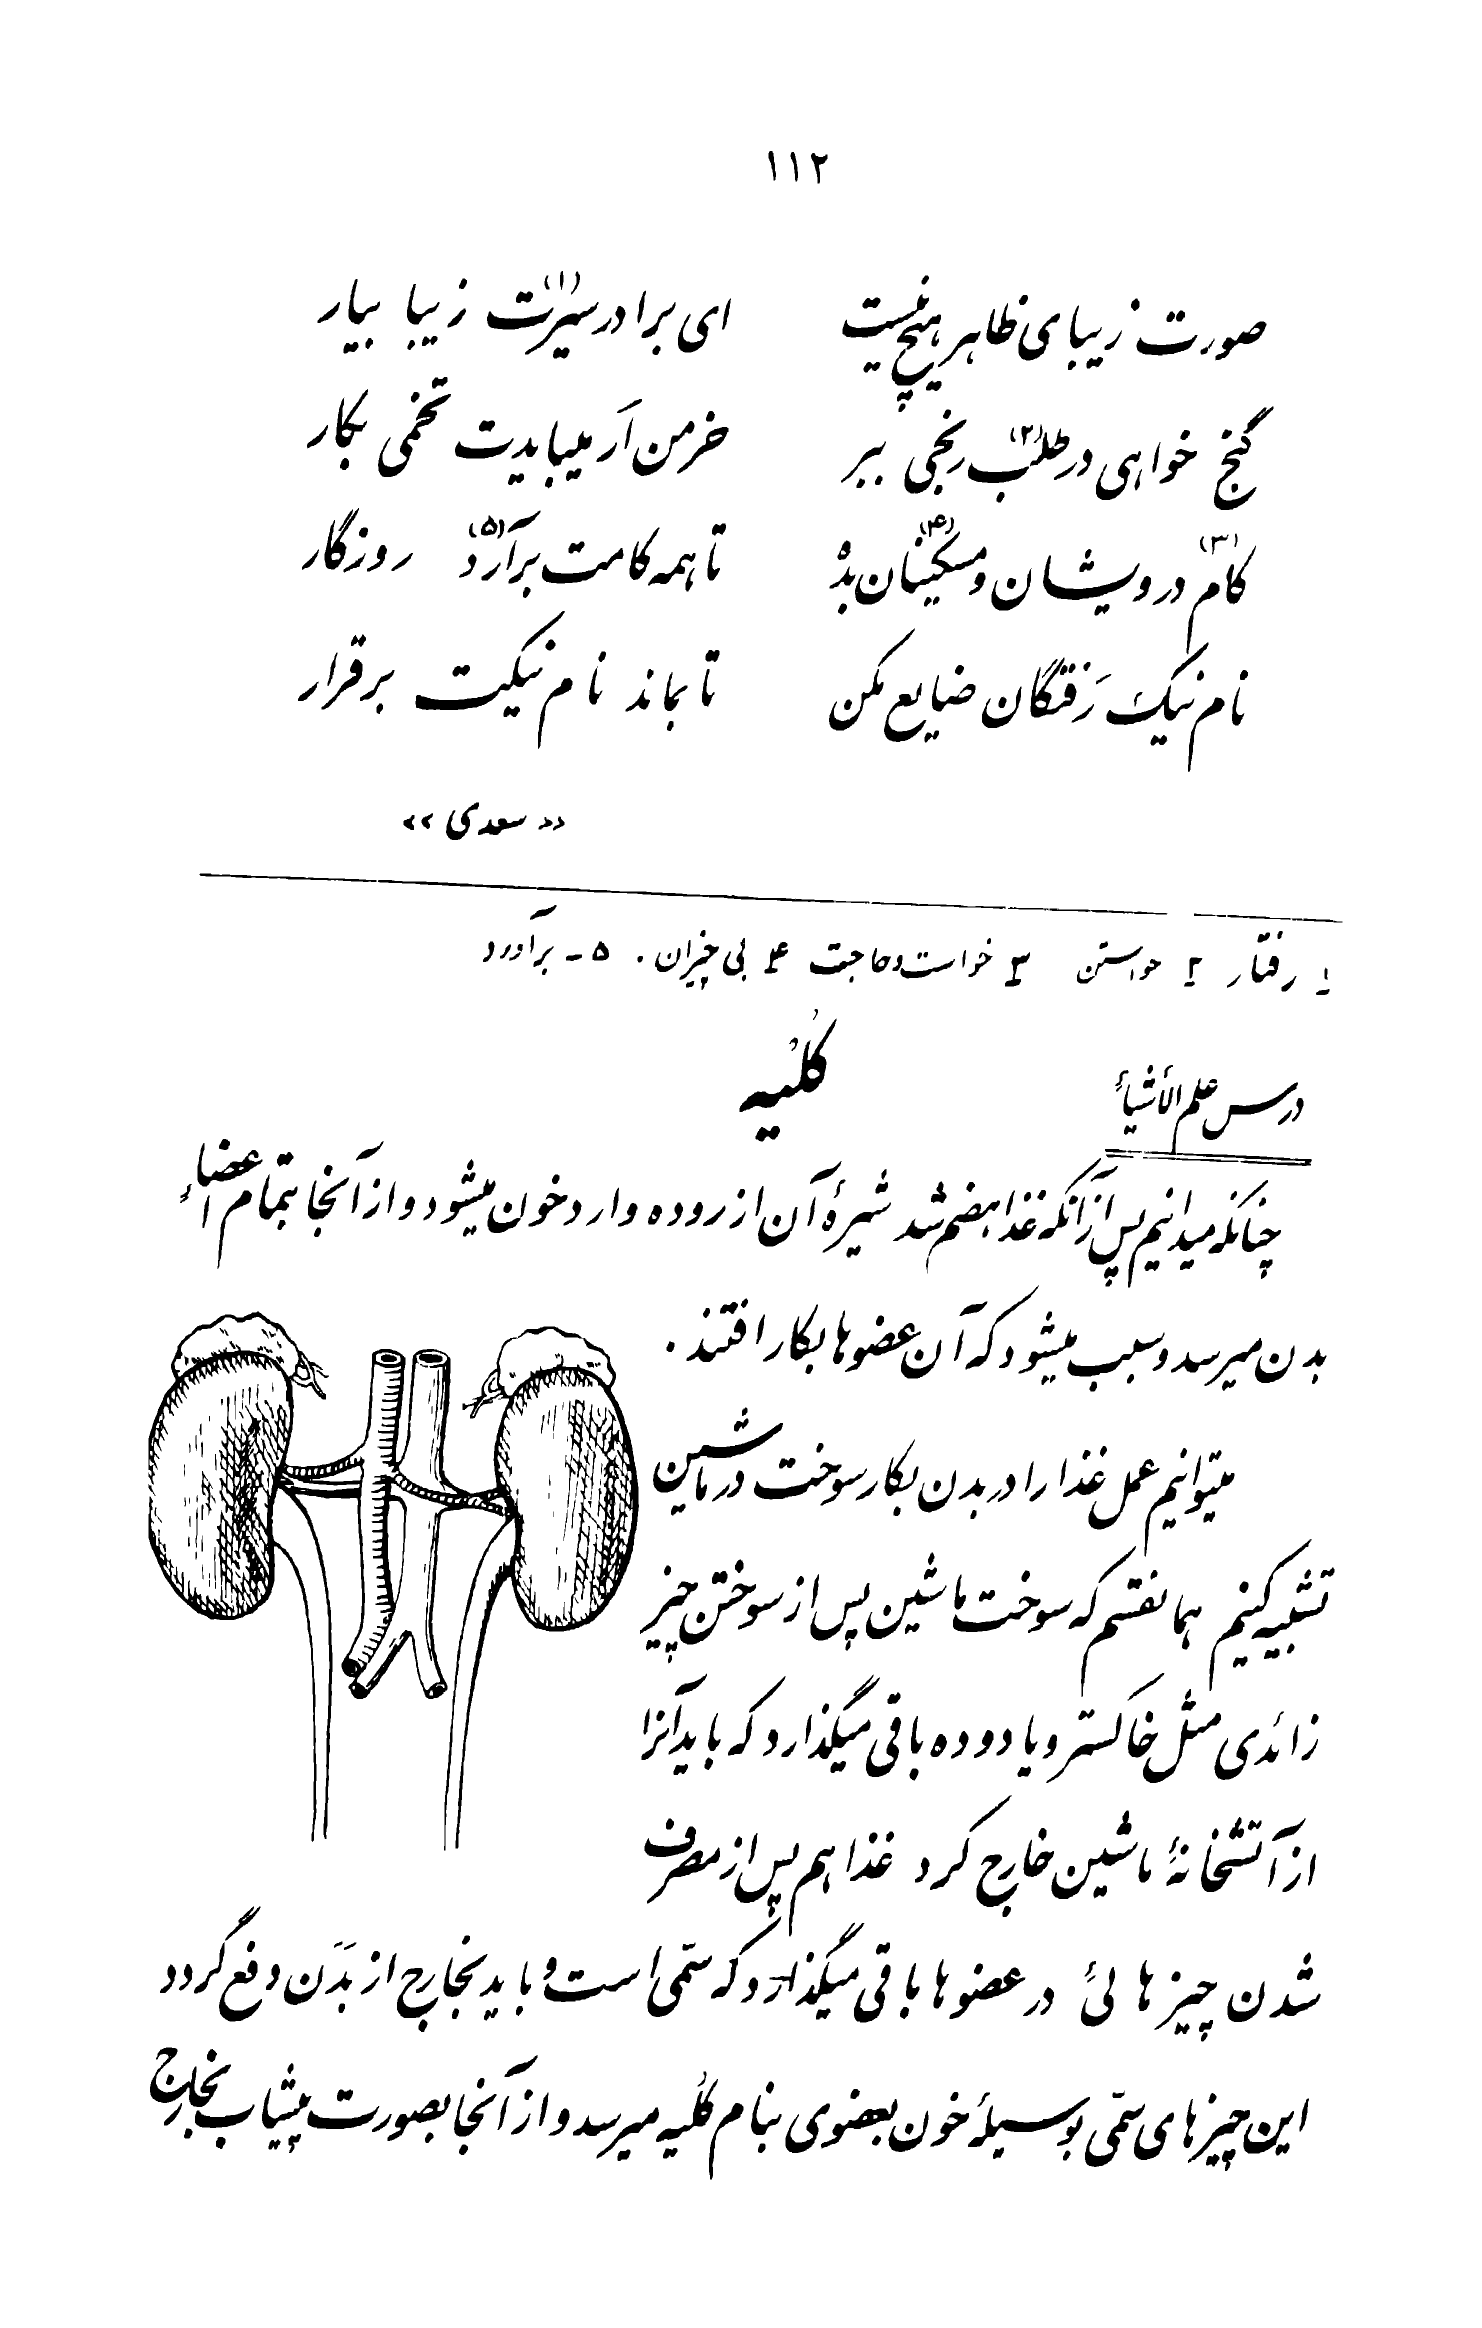 ۱۱۲
صورت زیبای ظاهر هیچ نیست ای برادر سیرت(۱) زیبا بیار
گنج خواهی در طلب(۲) رنجی ببر خرمن اَر میبایدت تخمی بکار
کام(۳) درویشان و مسکینان(۴) بدْه تا همه کامت برآرَد(۵) روزگار
نام نیک رَفتگان ضایع مکن تا بماند نام نیکت برقرار
«سعدی»
۱ـ رفتار ۲ـ خواستن ۳ـ خواست و حاجت ۴ـ بی چیزان . ۵ ـ برآورد
کُلْیه
درس علم الأشیاءٔ
چنانکه میدانیم پس از آنکه غذا هضم شد شیرهٔ آن از روده وارد خون میشود و از آنجا بتمام اعضاءِ
بدن میرسد و سبب میشود که آن عضوها بکار افتند .
میتوانیم عمل غذا را در بدن بکار سوخت در ماشین
تشبیه کنیم همانقسم که سوخت ماشین پس از سوختن چیز
زائدی مثل خاکستر و یا دوده باقی میگذارد که باید آنرا
از آتشخانهٔ ماشین خارج کرد غذا هم پس از مصرف
شدن چیزهائی در عضوها باقی میگذارد که سمّی است و باید بخارج از بَدَن دفع گردد
این چیزهای سمّی بوسیلهٔ خون بعضوی بنام کُلیه میرسد و از آنجا بصورت پیشاب بخارج